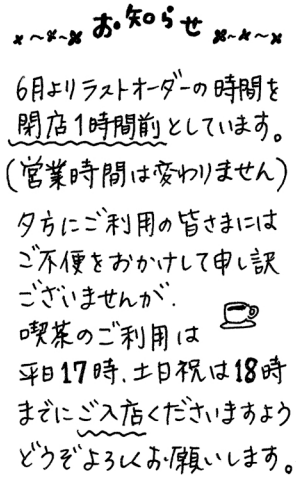 お知らせ
6月よりラストオーダーの時間を
閉店1時間前としています。
(営業時間は変わりません)
夕方にご利用の皆さまには
ご不便をおかけして申し訳
ございませんが、
喫茶のご利用は
平日17時、土日祝は18時
までにご入店くださいますよう
どうぞよろしくお願いします。